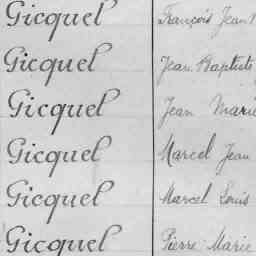 Gicquel François Jean
Gicquel Jean Baptiste
Gicquel Jean Marie
Gicquel Marcel Jean
Gicquel Marcel Louis
Gicquel Pierre Marie